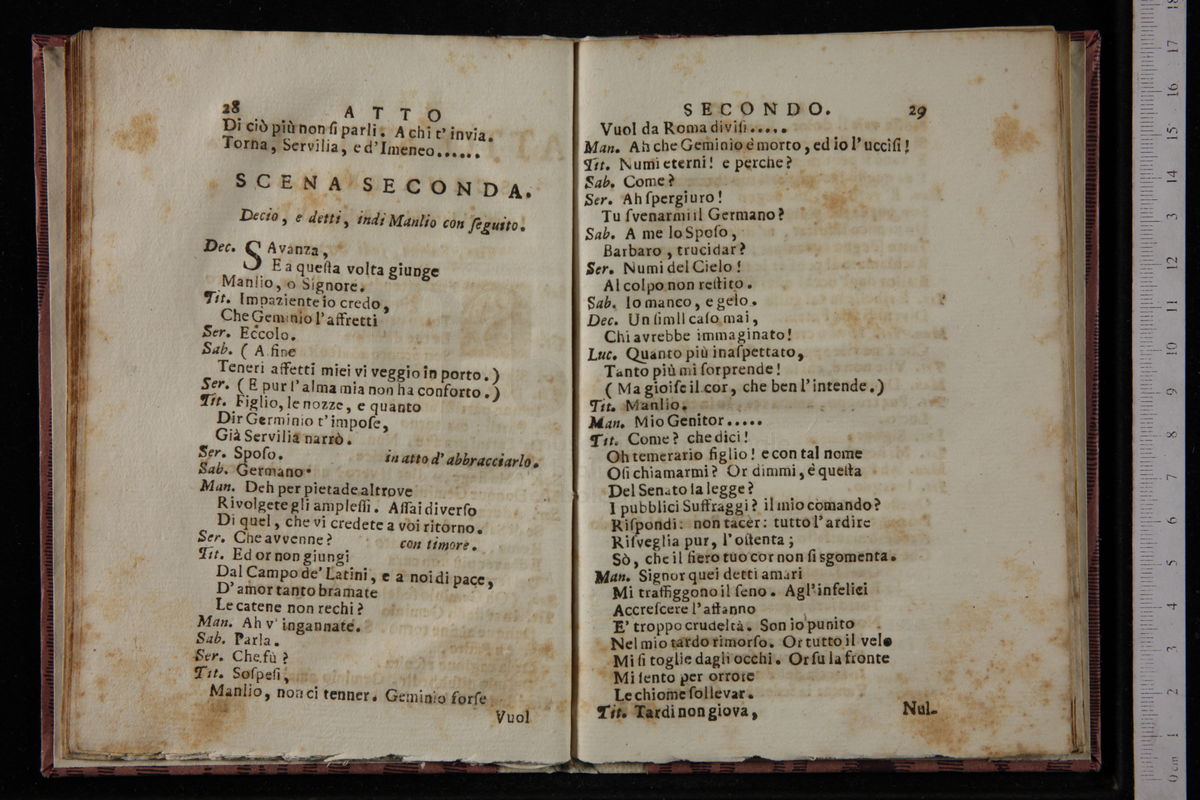 28 ATTO
Di ciò più non ſi parli. A chi t' invia.
Torna, Servilia, e d'Imeneo......
SCENA SECONDA.
Decio, e detti, indi Manlio con ſeguito.
Dec. SAvanza,
E a queſta volta giunge
Manlio, o Signore.
Tit. Impaziente io credo,
Che Geminio l'affretti
Ser. Eccolo.
Sab. ( A fine
Teneri affetti miei vi veggio in porto.)
Ser. ( E pur l'alma mia non ha conforto.)
Tit. Figlio, le nozze, e quanto
Dir Germinio t'impoſe,
Già Servilia narrò.
Ser. Spoſo. in atto d'abbracciarlo.
Sab. Germano.
Man. Deh per pietade altrove
Rivolgete gli ampleſſi. Aſſai diverſo
Di quel, che vi credete a voi ritorno.
Ser. Che avvenne? con timore.
Tit. Ed or non giungi
Dal Campo de' Latini, e a noi di pace,
D'amor tanto bramate
Le catene non rechi?
Man. Ah v' ingannate.
Sab. Parla.
Ser. Che fù?
Tit. Soſpeſi,
Manlio, non ci tenner. Geminio forſe
Vuol
SECONDO. 29
Vuol da Roma diviſi.....
Man. Ah che Geminio è morto, ed io l'ucciſi!
Tit. Numi eterni! e perche?
Sab. Come?
Ser. Ah ſpergiuro!
Tu ſvenarmi il Germano?
Sab. A me lo Spoſo,
Barbaro, trucidar?
Ser. Numi del Cielo!
Al colpo non reſiſto.
Sab. Io manco, e gelo.
Dec. Un ſimil caſo mai,
Chi avrebbe immaginato!
Luc. Quanto più inaſpettato,
Tanto più mi ſorprende!
( Ma gioiſe il cor, che ben l'intende.)
Tit. Manlio.
Man. Mio Genitor.....
Tit. Come? che dici!
Oh temerario figlio! e con tal nome
Oſi chiamarmi? Or dimmi, è queſta
Del Senato la legge?
I pubblici Suffraggi? il mio comando?
Riſpondi: non tacer: tutto l'ardire
Riſveglia pur, l'oſtenta;
Sò, che il fiero tuo cor non ſi sgomenta.
Man. Signor quei detti amari
Mi traffiggono il ſeno. Agl'infelici
Accreſcere l'affanno
E' troppo crudeltà. Son io punito
Nel mio tardo rimorſo. Or tutto il velo
Mi ſi toglie dagli occhi. Or ſu la fronte
Mi ſento per orrore
Le chiome ſollevar.
Tit. Tardi non giova,
Nul-